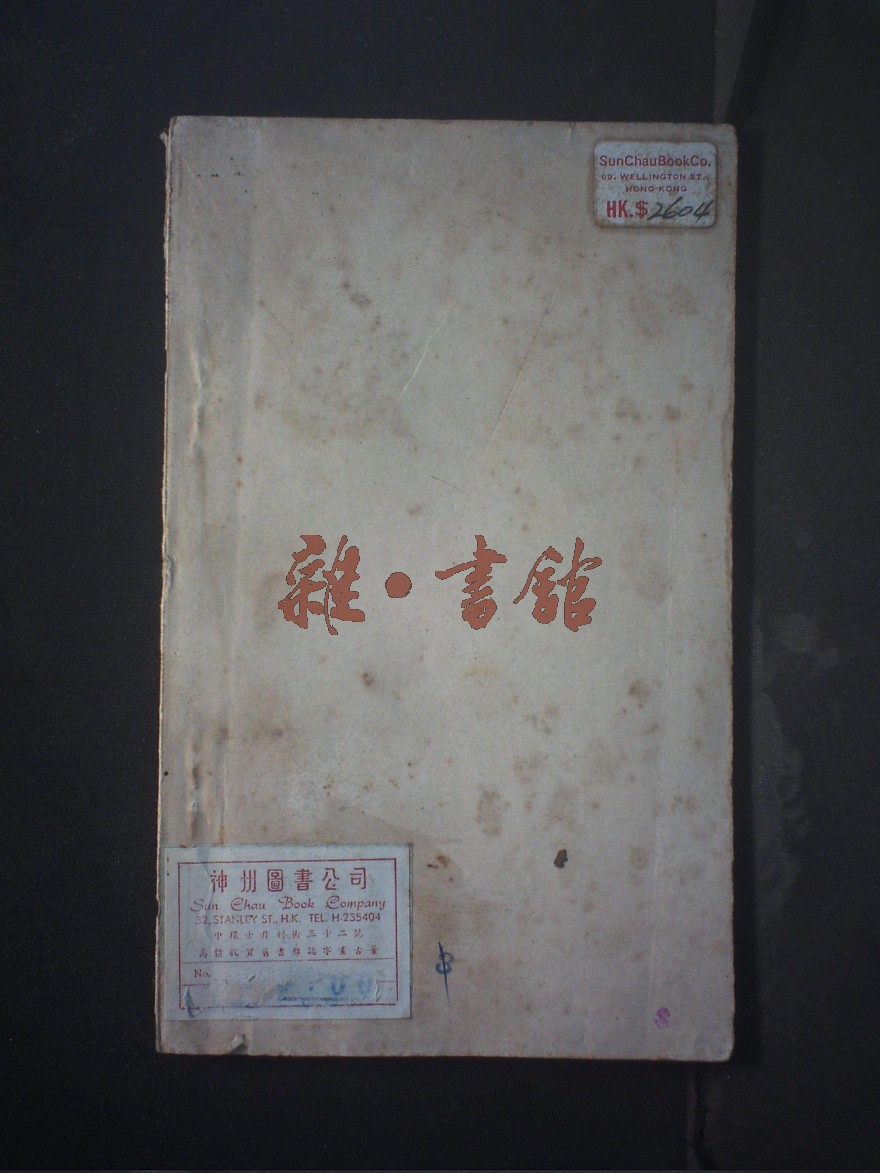 SunChauBookCo.
69. WELLINGTON ST.,
HONG KONG
HK.$2604
雜・書館
神州圖書公司
Sun Chau Book Company
32, STANLEY ST., H.K. TEL. H-235404
中環士丹利街三十二號
高價收買舊書雜誌字畫古董
No.